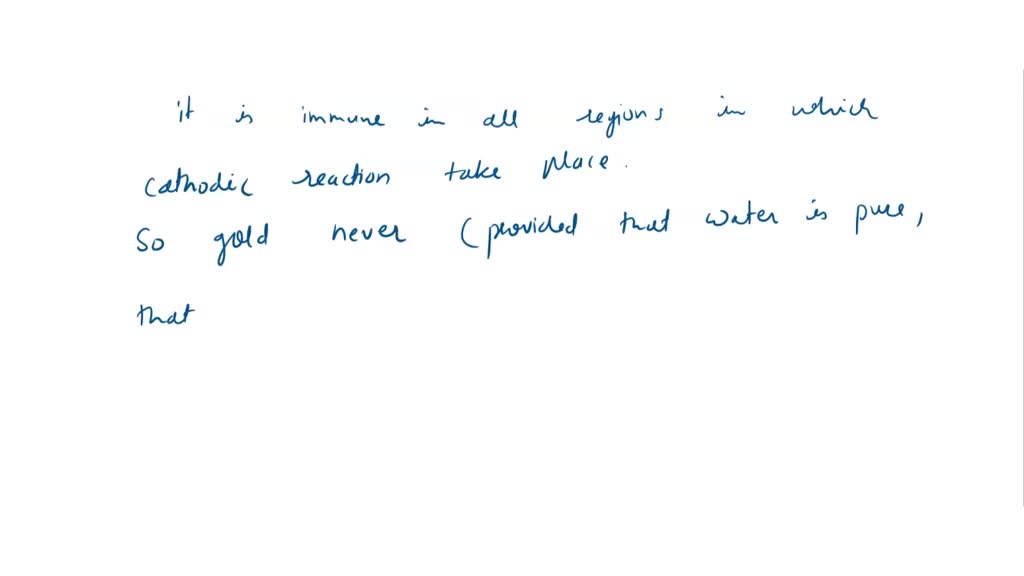 it is immune in all regions in which
cathodic reaction take place.
So gold never (provided that water is pure,
that